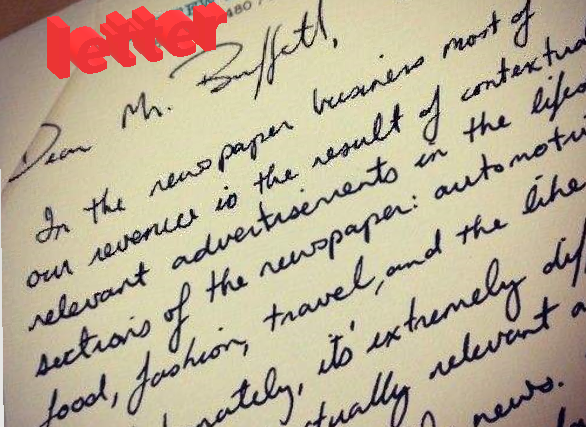 letter
480
Dear Mr. Buffett,
In the newspaper business most of
our revenue is the result of
relevant advertisements in the
sections of the newspaper:
food, fashion, travel, and the like
it's extremely
relevant
news.